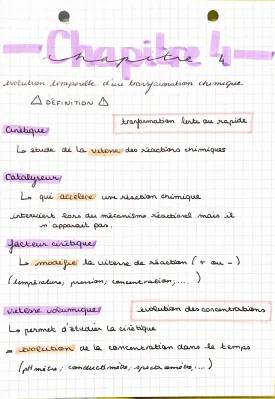 Chapitre 4
chapitre 4
évolution temporelle d'une transformation chimique
⚠ DÉFINITION ⚠
transformation lente ou rapide
Cinétique
↳ étude de la vitesse des réactions chimiques
Catalyseur
↳ qui accélère une réaction chimique
intervient lors du mécanisme réactionnel mais il
n'apparait pas.
facteur cinétique
↳ modifie la vitesse de réaction (+ ou -)
(température, pression, concentration, ....)
vitesse volumique
évolution des concentrations
↳ permet d'étudier la cinétique
= évolution de la concentration dans le temps
(pH mètre, conductimètre, spectromètre, ...)